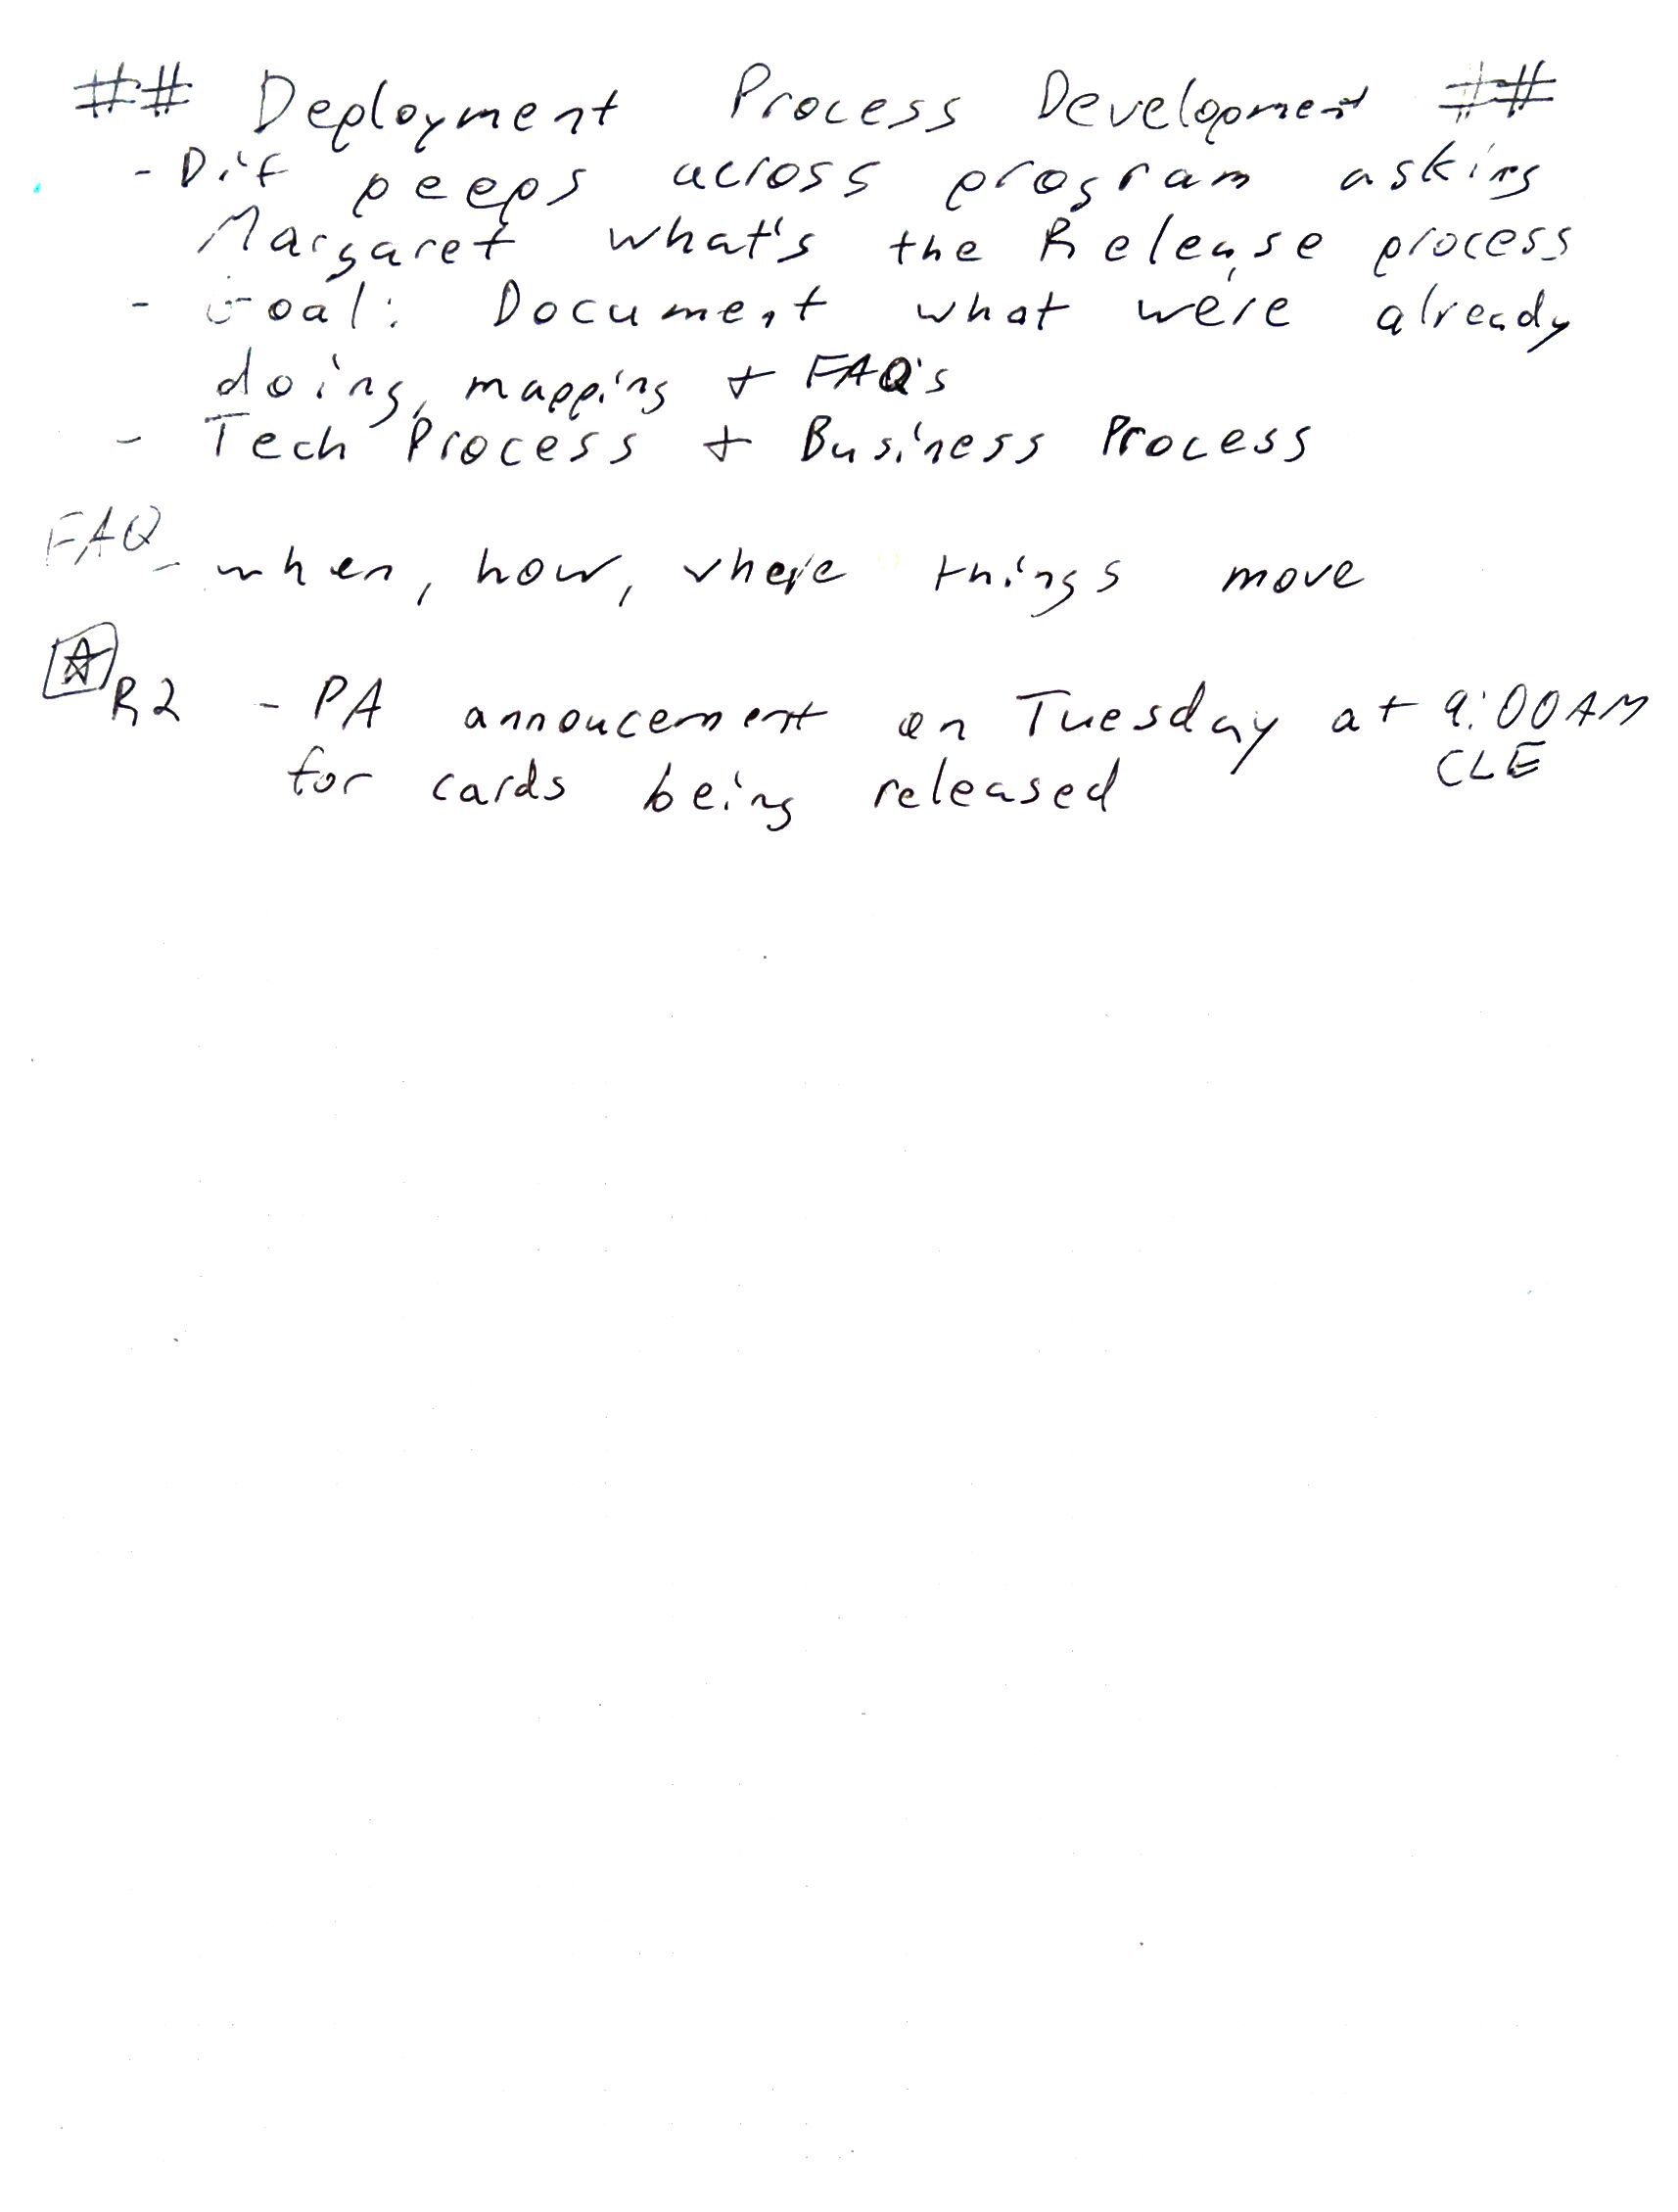 ## Deployment Process Development ##
- Dif peeps across program asking
Margaret what's the Release process
- Goal: Document what we're already
doing, mapping + FAQ's
- Tech Process + Business Process
FAQ
- when, how, where things move
R2 - PA annoucement on Tuesday at 9:00AM
CLE
for cards being released